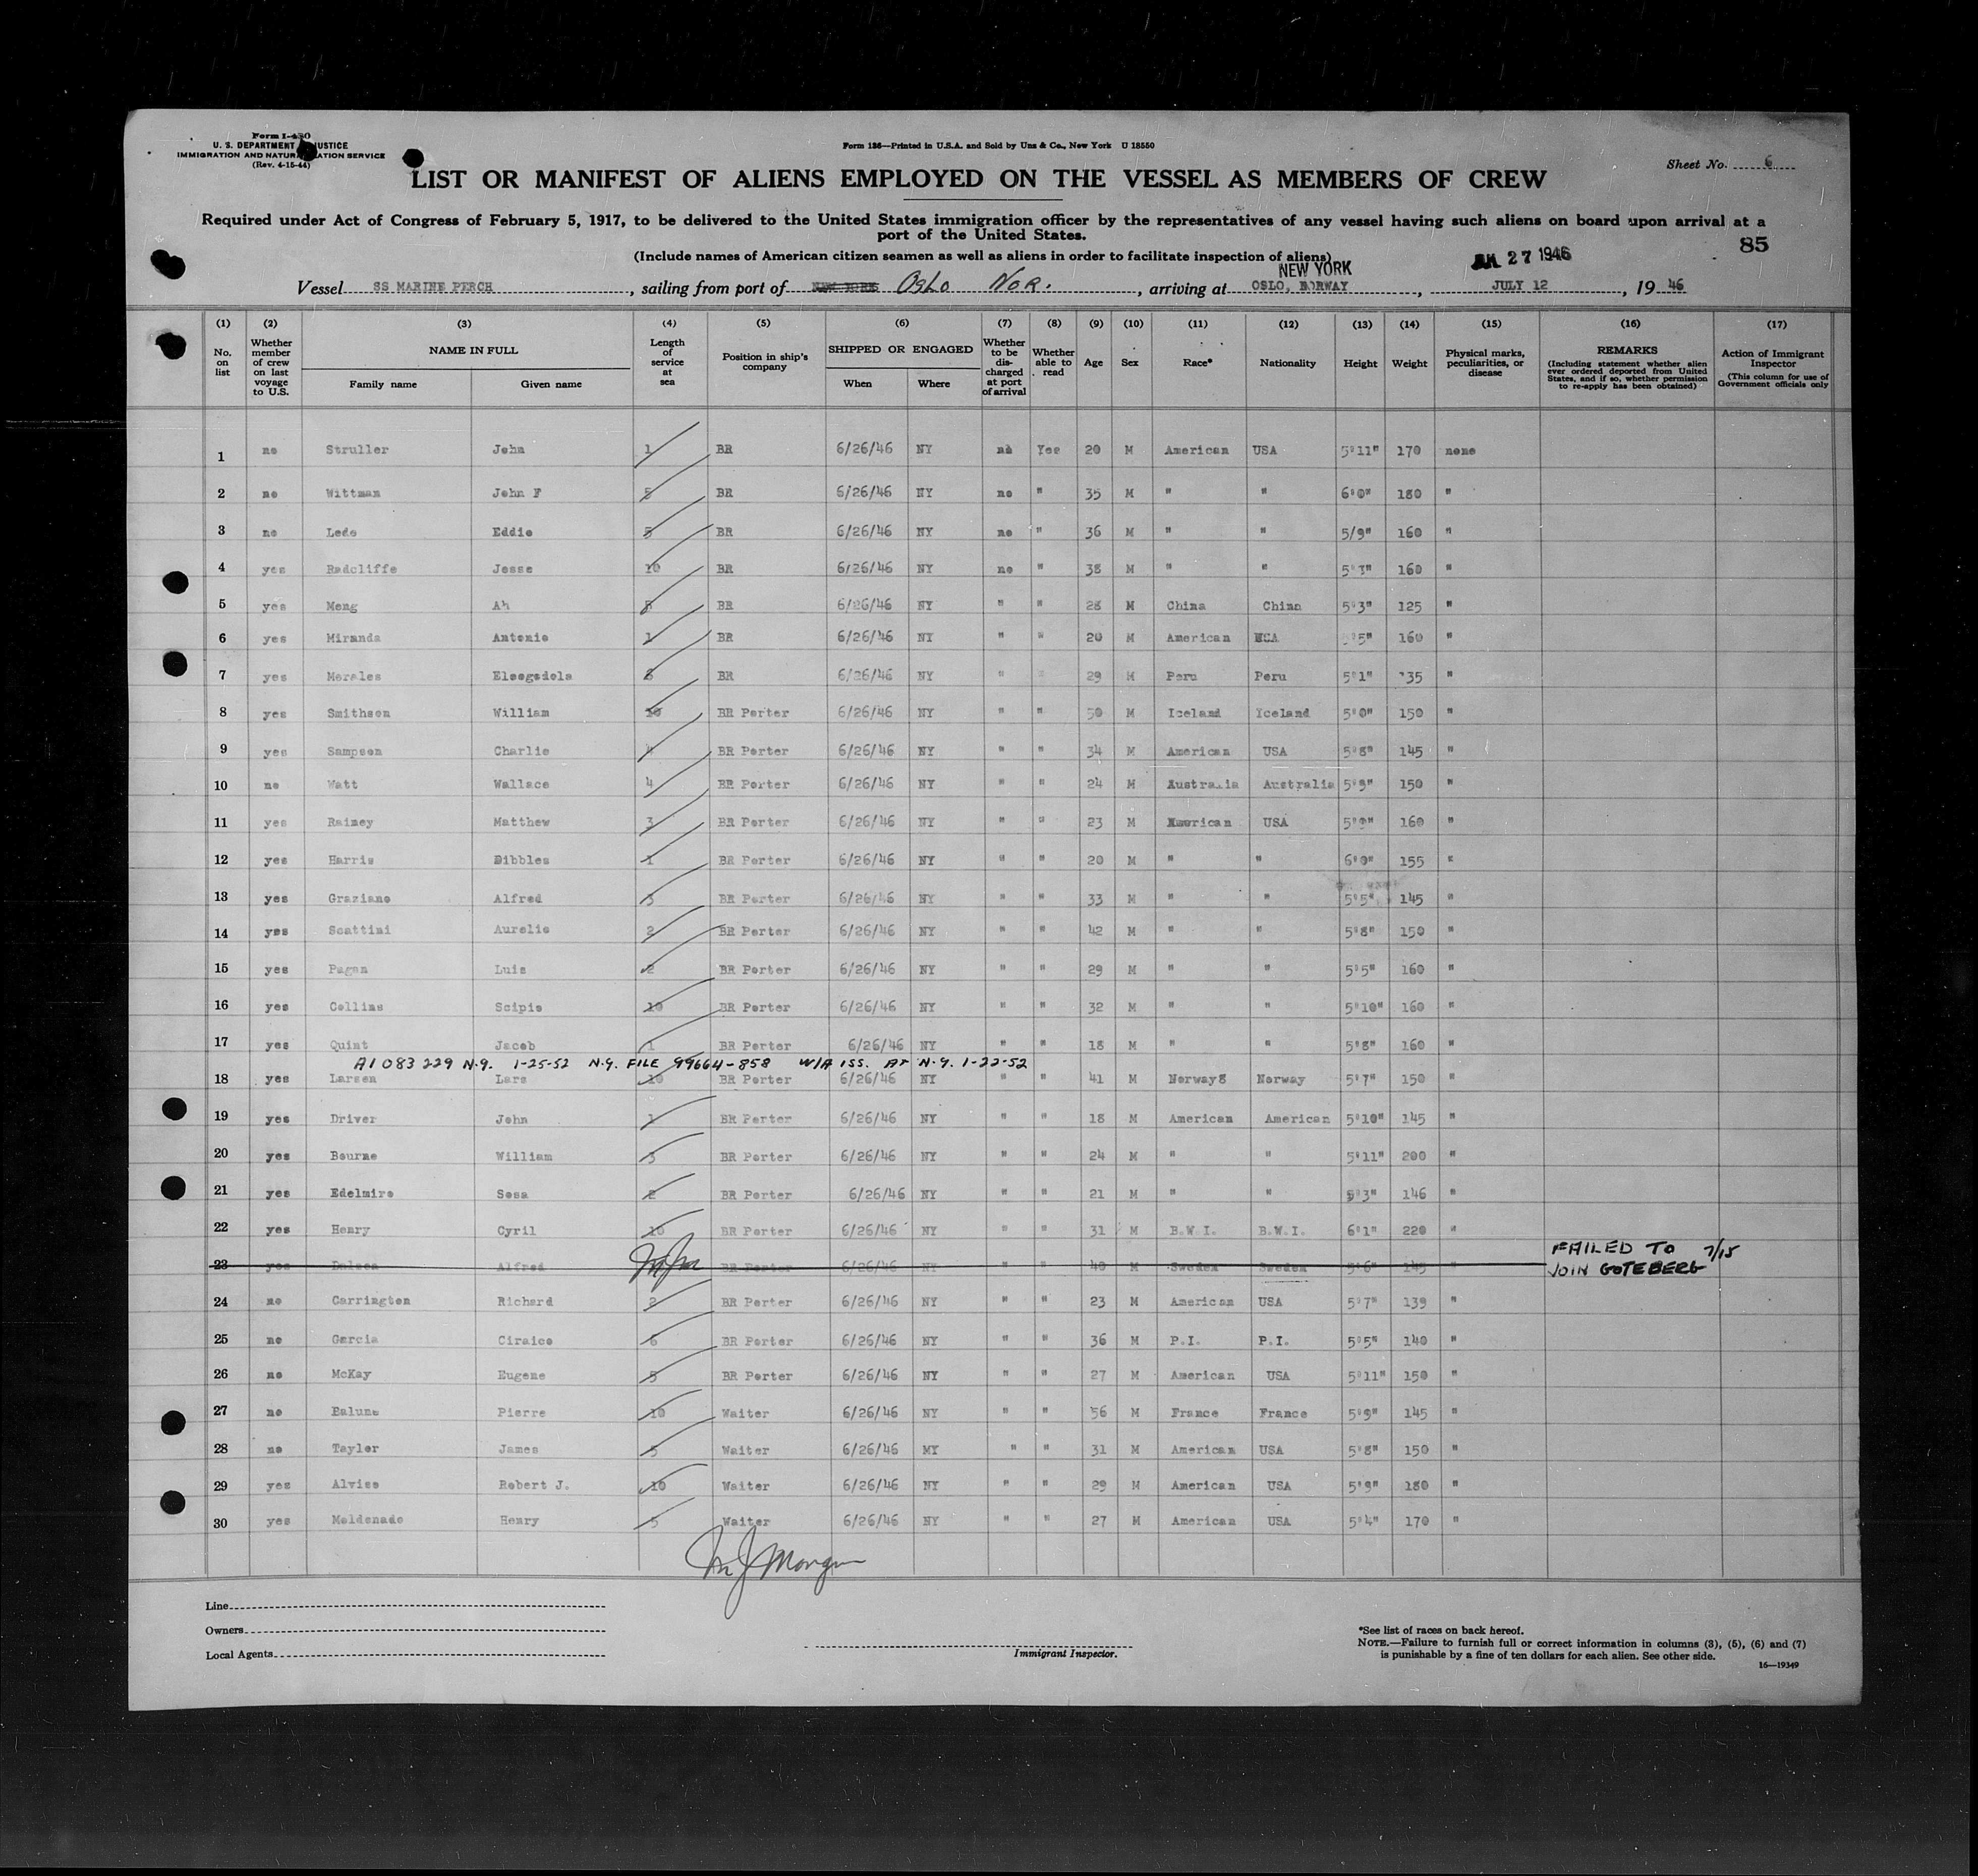 Form I-480
U. S. DEPARTMENT OF JUSTICE
IMMIGRATION AND NATURALIZATION SERVICE
(Rev. 4-15-44)
Form 136—Printed in U.S.A. and Sold by Unz & Co., New York U 18550
Sheet No. 6
LIST OR MANIFEST OF ALIENS EMPLOYED ON THE VESSEL AS MEMBERS OF CREW
Required under Act of Congress of February 5, 1917, to be delivered to the United States immigration officer by the representatives of any vessel having such aliens on board upon arrival at a
port of the United States.
85
(Include names of American citizen seamen as well as aliens in order to facilitate inspection of aliens)
NEW YORK 27 1946
Vessel SS MARINE PERCH, sailing from port of NEW YORK Oslo Nor., arriving at OSLO, NORWAY, JULY 12, 19 46
(1) (2) (3) (4) (5) (6) (7) (8) (9) (10) (11) (12) (13) (14) (15) (16) (17)
No. on list
Whether member of crew on last voyage to U.S.
NAME IN FULL
Family name
Given name
Length of service at sea
Position in ship's company
SHIPPED OR ENGAGED
When
Where
Whether to be discharged at port of arrival
Whether able to read
Age
Sex
Race*
Nationality
Height
Weight
Physical marks, peculiarities, or disease
REMARKS
(Including statement whether alien ever ordered deported from United States, and if so, whether permission to re-apply has been obtained)
Action of Immigrant Inspector
(This column for use of Government officials only
1 no Struller John 1 BR 6/26/46 NY no Yes 20 M American USA 5'11" 170 none
2 no Wittman John F 5 BR 6/26/46 NY no " 35 M " " 6'0" 180 "
3 no Lede Eddie 5 BR 6/26/46 NY no " 36 M " " 5/9" 160 "
4 yes Radcliffe Jesse 10 BR 6/26/46 NY no " 38 M " " 5'3" 160 "
5 yes Meng Ah 5 BR 6/26/46 NY " " 28 M China China 5'3" 125 "
6 yes Miranda Antonio 1 BR 6/26/46 NY " " 20 M American USA 5'5" 160 "
7 yes Morales 6 BR 6/26/46 NY " " 29 M Peru Peru 5'1" 135 "
8 yes Smithson William 10 BR Porter 6/26/46 NY " " 50 M Iceland Iceland 5'0" 150 "
9 yes Sampson Charlie 4 BR Porter 6/26/46 NY " " 34 M American USA 5'8" 145 "
10 no Watt Wallace 4 BR Porter 6/26/46 NY " " 24 M Australia Australia 5'9" 150 "
11 yes Rainey Matthew 3 BR Porter 6/26/46 NY " " 23 M American USA 5'9" 160 "
12 yes Harris Dibbles 1 BR Porter 6/26/46 NY " " 20 M " " 6'0" 155 "
13 yes Graziano Alfred 3 BR Porter 6/26/46 NY " " 33 M " " 5'5" 145 "
14 yes Scattini Aurelio 2 BR Porter 6/26/46 NY " " 42 M " " 5'8" 150 "
15 yes Pagan Luis 2 BR Porter 6/26/46 NY " " 29 M " " 5'5" 160 "
16 yes Collins Scipio 10 BR Porter 6/26/46 NY " " 32 M " " 5'10" 160 "
17 yes Quint Jacob 1 BR Porter 6/26/46 NY " " 18 M " " 5'8" 160 "
A1 083 229 N.Y. 1-25-52 N.Y. FILE 99664-858 W/A ISS. AT N.Y. 1-22-52
18 yes Larsen Lars 10 BR Porter 6/26/46 NY " " 41 M Norway Norway 5'7" 150 "
19 yes Driver John 1 BR Porter 6/26/46 NY " " 18 M American American 5'10" 145 "
20 yes Bourne William 3 BR Porter 6/26/46 NY " " 24 M " " 5'11" 200 "
21 yes Edelmiro Sosa 2 BR Porter 6/26/46 NY " " 21 M " " 5'3" 146 "
22 yes Henry Cyril 10 BR Porter 6/26/46 NY " " 31 M B.W.I. B.W.I. 6'1" 220 "
23 yes Alfred BR Porter 6/26/46 NY 40 M Sweden Sweden 5'6" 145 " FAILED TO JOIN GOTEBERG 7/15
24 no Carrington Richard 2 BR Porter 6/26/46 NY " " 23 M American USA 5'7" 139 "
25 no Garcia Ciraico 6 BR Porter 6/26/46 NY " " 36 M P.I. P.I. 5'5" 140 "
26 no McKay Eugene 5 BR Porter 6/26/46 NY " " 27 M American USA 5'11" 150 "
27 no Balune Pierre 10 Waiter 6/26/46 NY " " 56 M France France 5'9" 145 "
28 no Taylor James 5 Waiter 6/26/46 MY " " 31 M American USA 5'8" 150 "
29 yes Alvise Robert J. 10 Waiter 6/26/46 NY " " 29 M American USA 5'9" 180 "
30 yes Maldonado Henry 5 Waiter 6/26/46 NY " " 27 M American USA 5'4" 170 "
M J Morgan
Line
Owners
Local Agents
Immigrant Inspector.
*See list of races on back hereof.
NOTE.—Failure to furnish full or correct information in columns (3), (5), (6) and (7)
is punishable by a fine of ten dollars for each alien. See other side.
16—19349